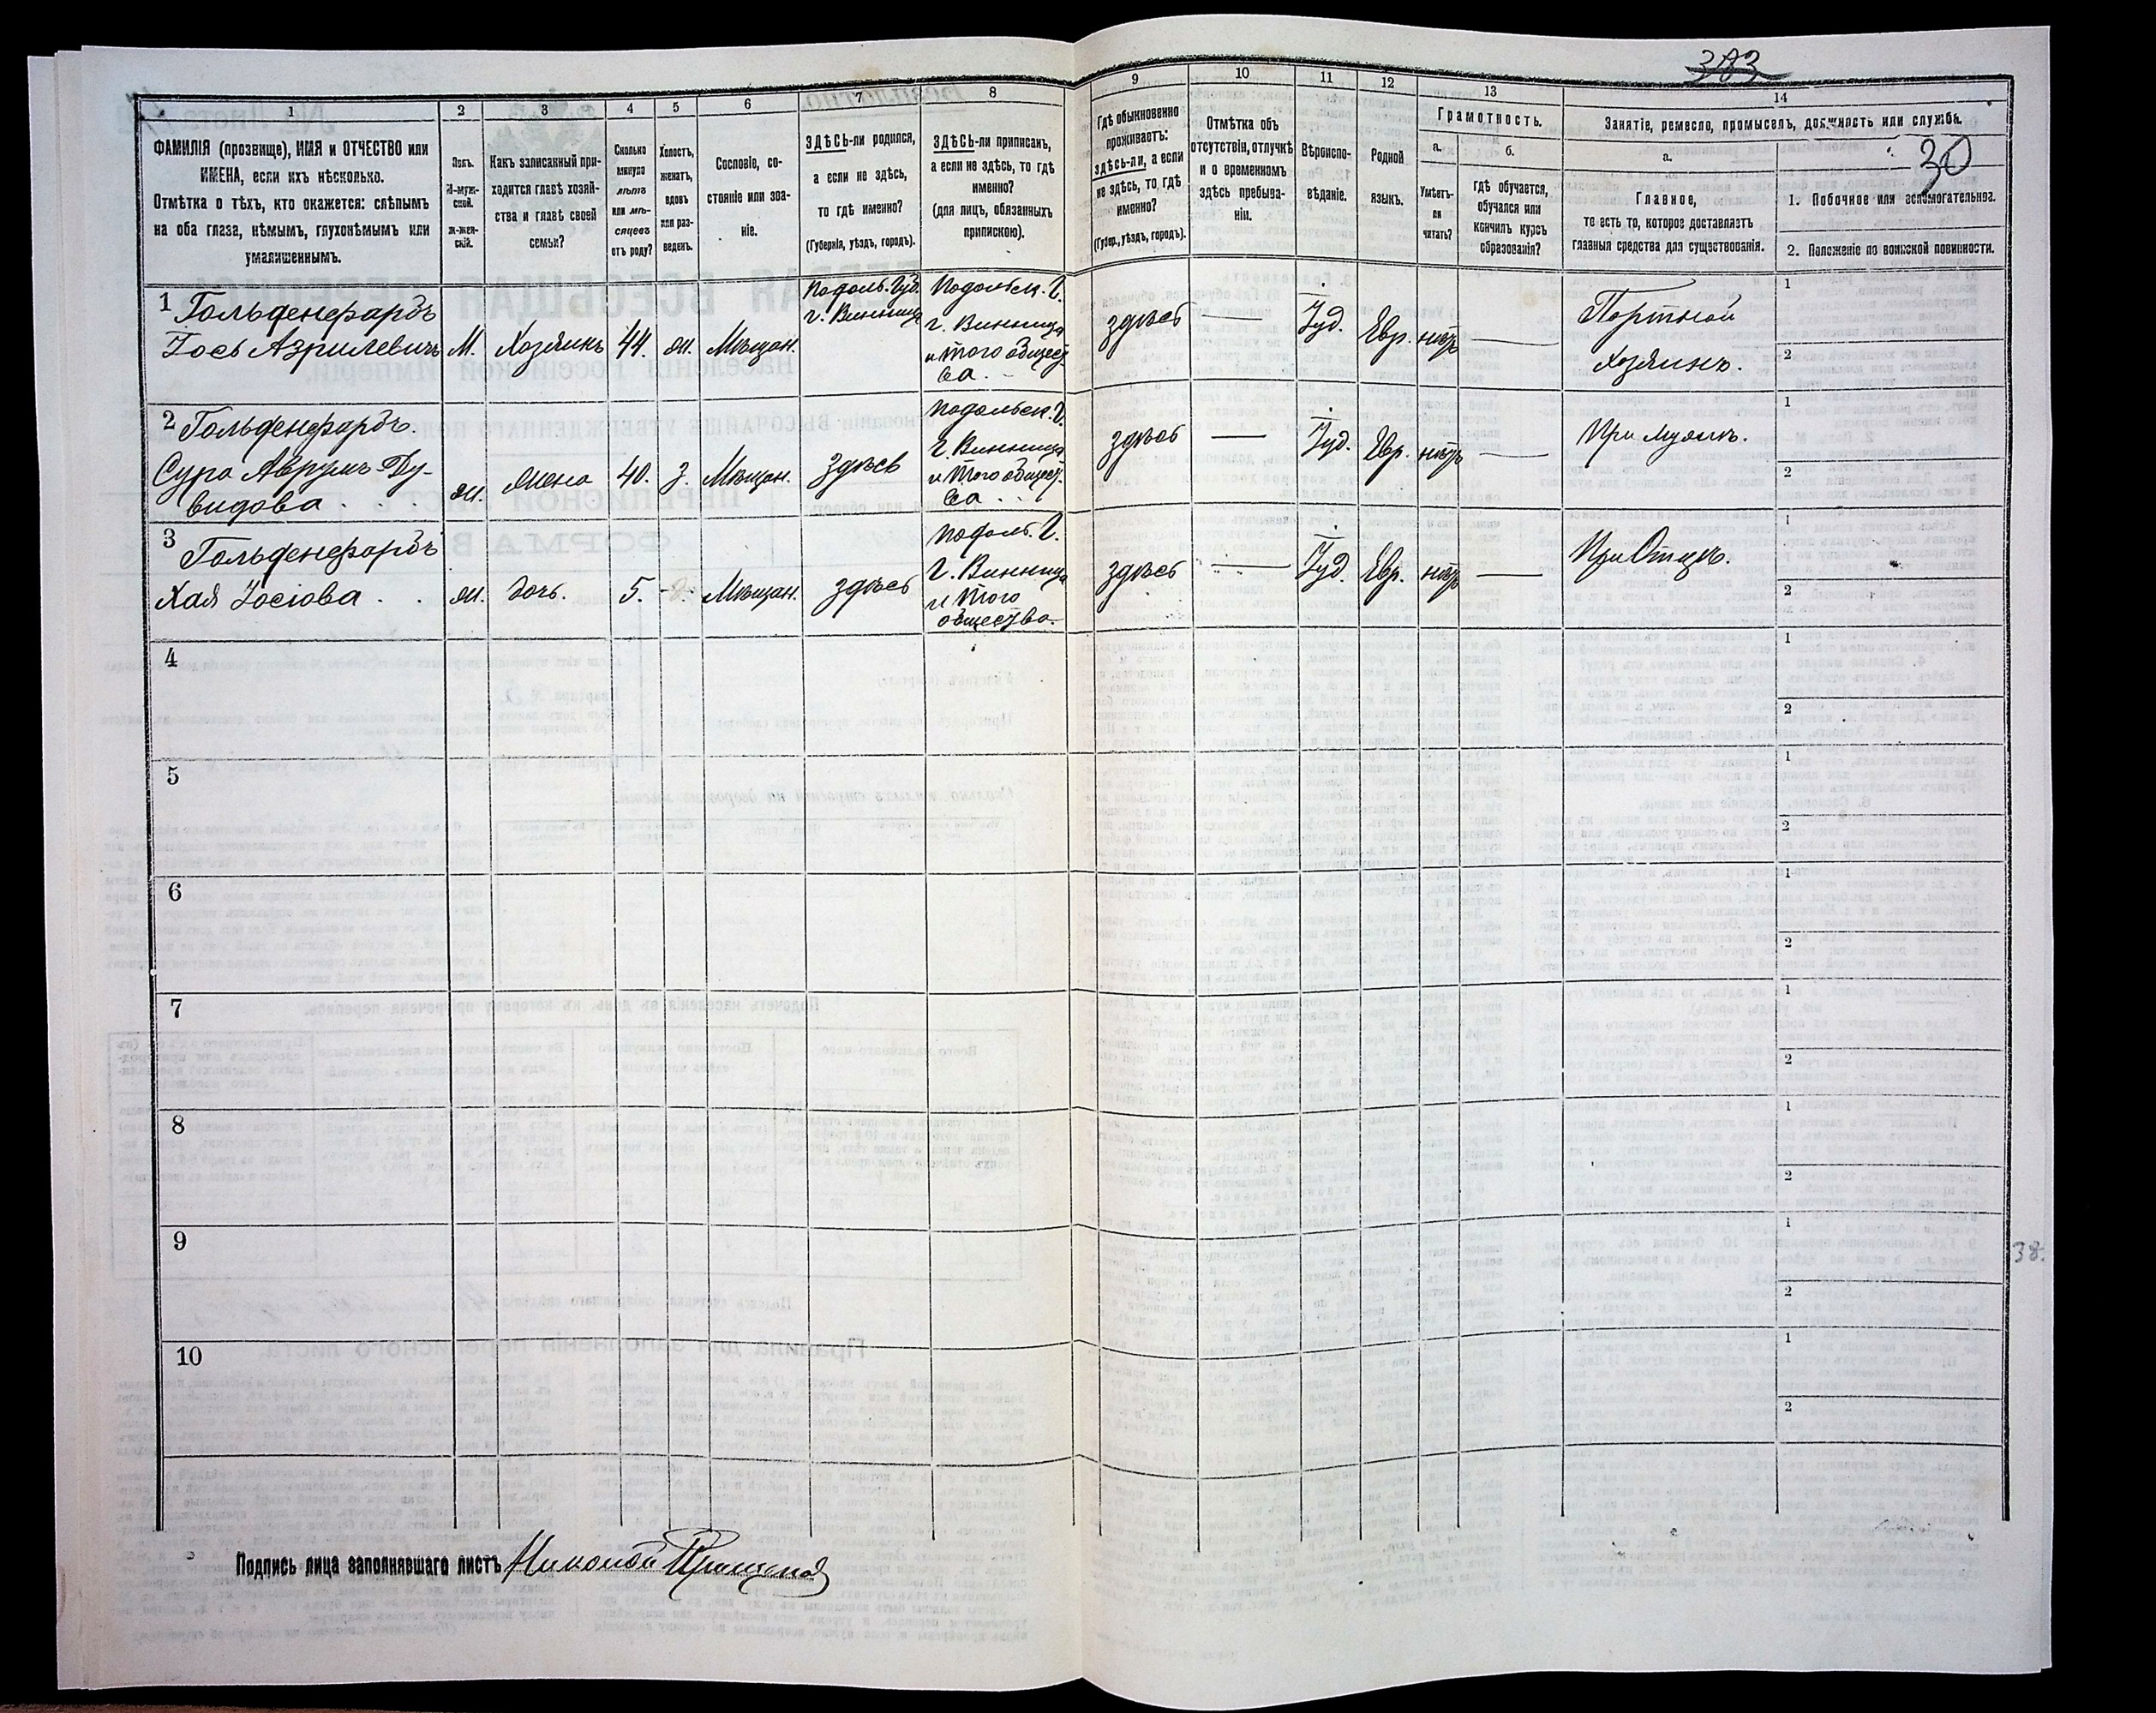 383
30
1
2
3
4
5
6
7
8
9
10
11
12
13
14
ФАМИЛІЯ (прозвище), ИМЯ и ОТЧЕСТВО или
ИМЕНА, если ихъ нѣсколько.
Отмѣтка о тѣхъ, кто окажется: слѣпымъ
на оба глаза, нѣмымъ, глухонѣмымъ или
умалишеннымъ.
Полъ.
М-муж-
ской.
Ж-жен-
скій.
Какъ записанный при-
ходится главѣ хозяй-
ства и главѣ своей
семьи?
Сколько
минуло
лѣтъ
или мѣ-
сяцевъ
отъ роду?
Холостъ,
женатъ,
вдовъ
или раз-
веденъ.
Сословіе, со-
стояніе или зва-
ніе.
ЗДѢСЬ-ли родился,
а если не здѣсь,
то гдѣ именно?
(Губернія, уѣздъ, городъ).
ЗДѢСЬ-ли приписанъ,
а если не здѣсь, то гдѣ
именно?
(для лицъ, обязанныхъ
припискою).
Гдѣ обыкновенно
проживаетъ:
здѣсь-ли, а если
не здѣсь, то гдѣ
именно?
(Губер., уѣздъ, городъ).
Отмѣтка объ
отсутствіи, отлучкѣ
и о временномъ
здѣсь пребыва-
ніи.
Вѣроиспо-
вѣданіе.
Родной
языкъ.
Грамотность.
а.
Умѣетъ-
ли
читать?
б.
гдѣ обучается,
обучался или
кончилъ курсъ
образованія?
Занятіе, ремесло, промыселъ, должность или служба.
а.
Главное,
то есть то, которое доставляетъ
главныя средства для существованія.
1. Побочное или вспомогательное.
2. Положеніе по воинской повинности.
1 Гольденфарбъ
Іось Азрилевичъ М. Хозяинъ 44. ж. Мѣщан.
Подоль. Губ.
г. Винница
Подольск. Г.
г. Винница
и того общест-
ва.
здѣсь — Іуд. Евр. нѣтъ —
Портной
Хозяинъ.
1
2
2 Гольденфарбъ.
Сура Аврумъ-Ду-
видова ж. жена 40. З. Мѣщан. здѣсь
Подольск. Г.
г. Винница
и того общест-
ва.
здѣсь — Іуд. Евр. нѣтъ —
При мужѣ.
1
2
3 Гольденфарбъ
Хая Іосіова ж. дочь. 5. Мѣщан. здѣсь
Подоль. Г.
г. Винница
и того
общества.
здѣсь — Іуд. Евр. нѣтъ —
При Отцѣ.
1
2
4
1
2
5
1
2
6
1
2
7
1
2
8
1
2
9
1
2
38.
10
1
2
Подпись лица заполнявшаго листъ